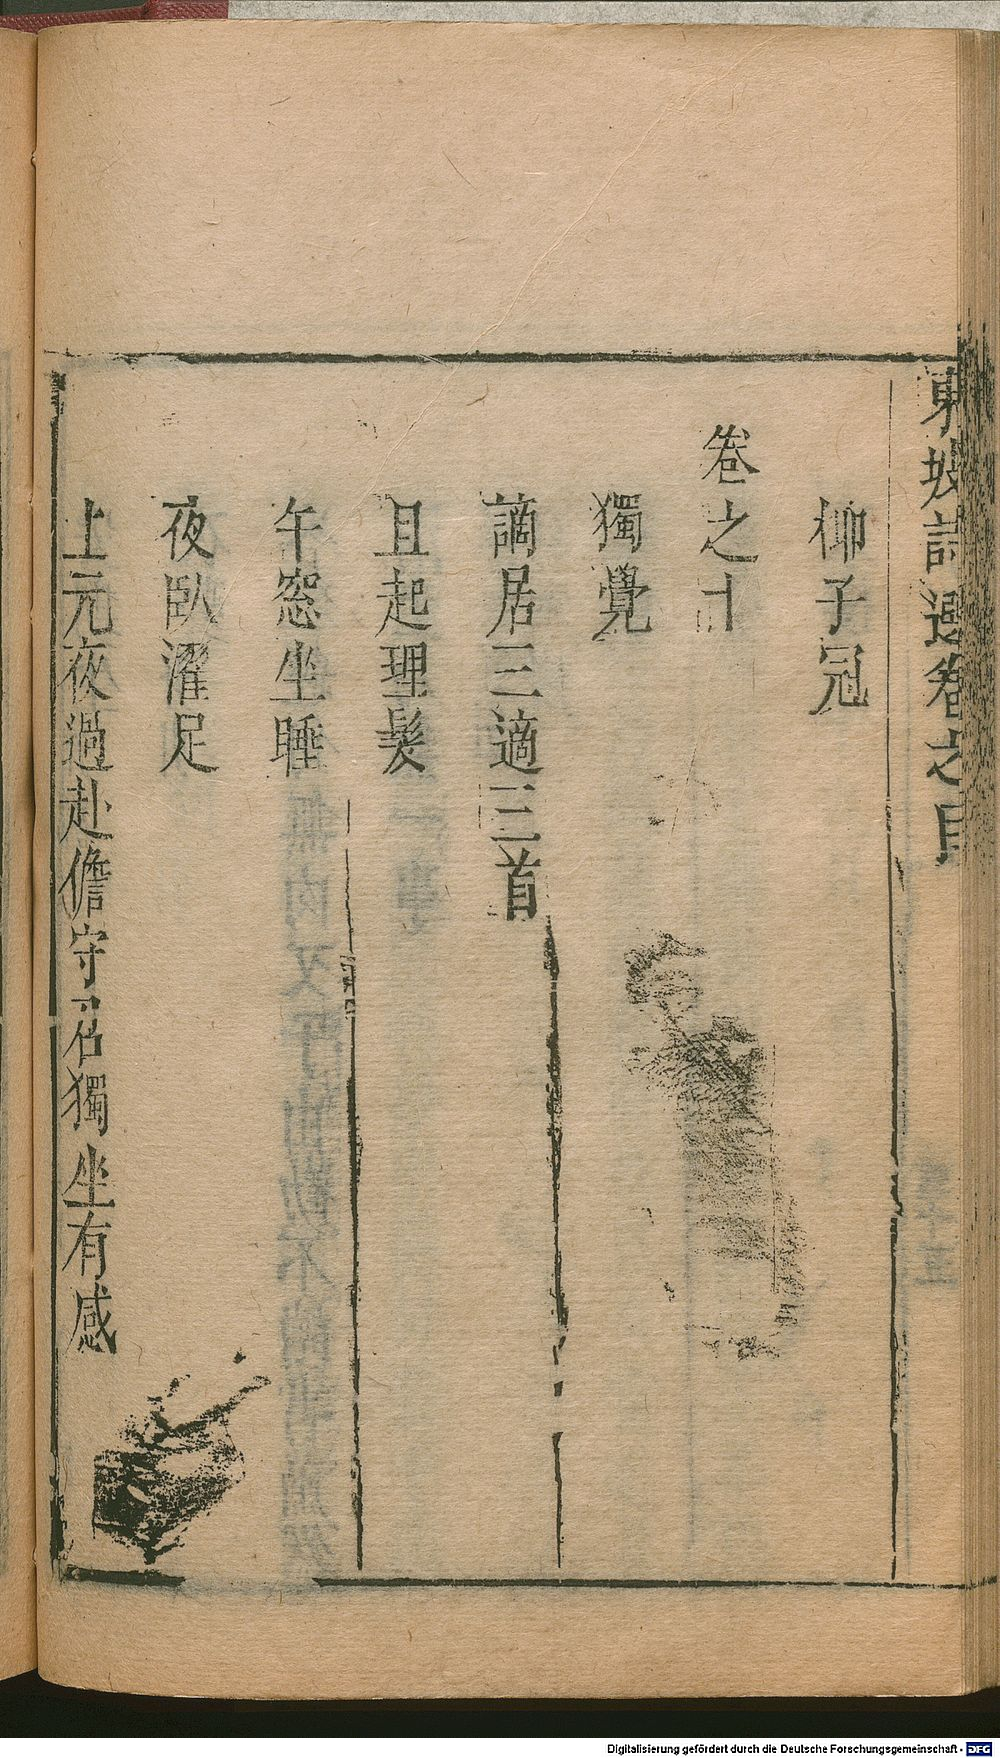 東坡詩選卷之目
仰子冠
卷之十
獨覺
謫居三適三首
且起理髮
午窓坐睡
夜臥濯足
上元夜過赴儋守召獨坐有感
Digitalisierung gefördert durch die Deutsche Forschungsgemeinschaft - DFG